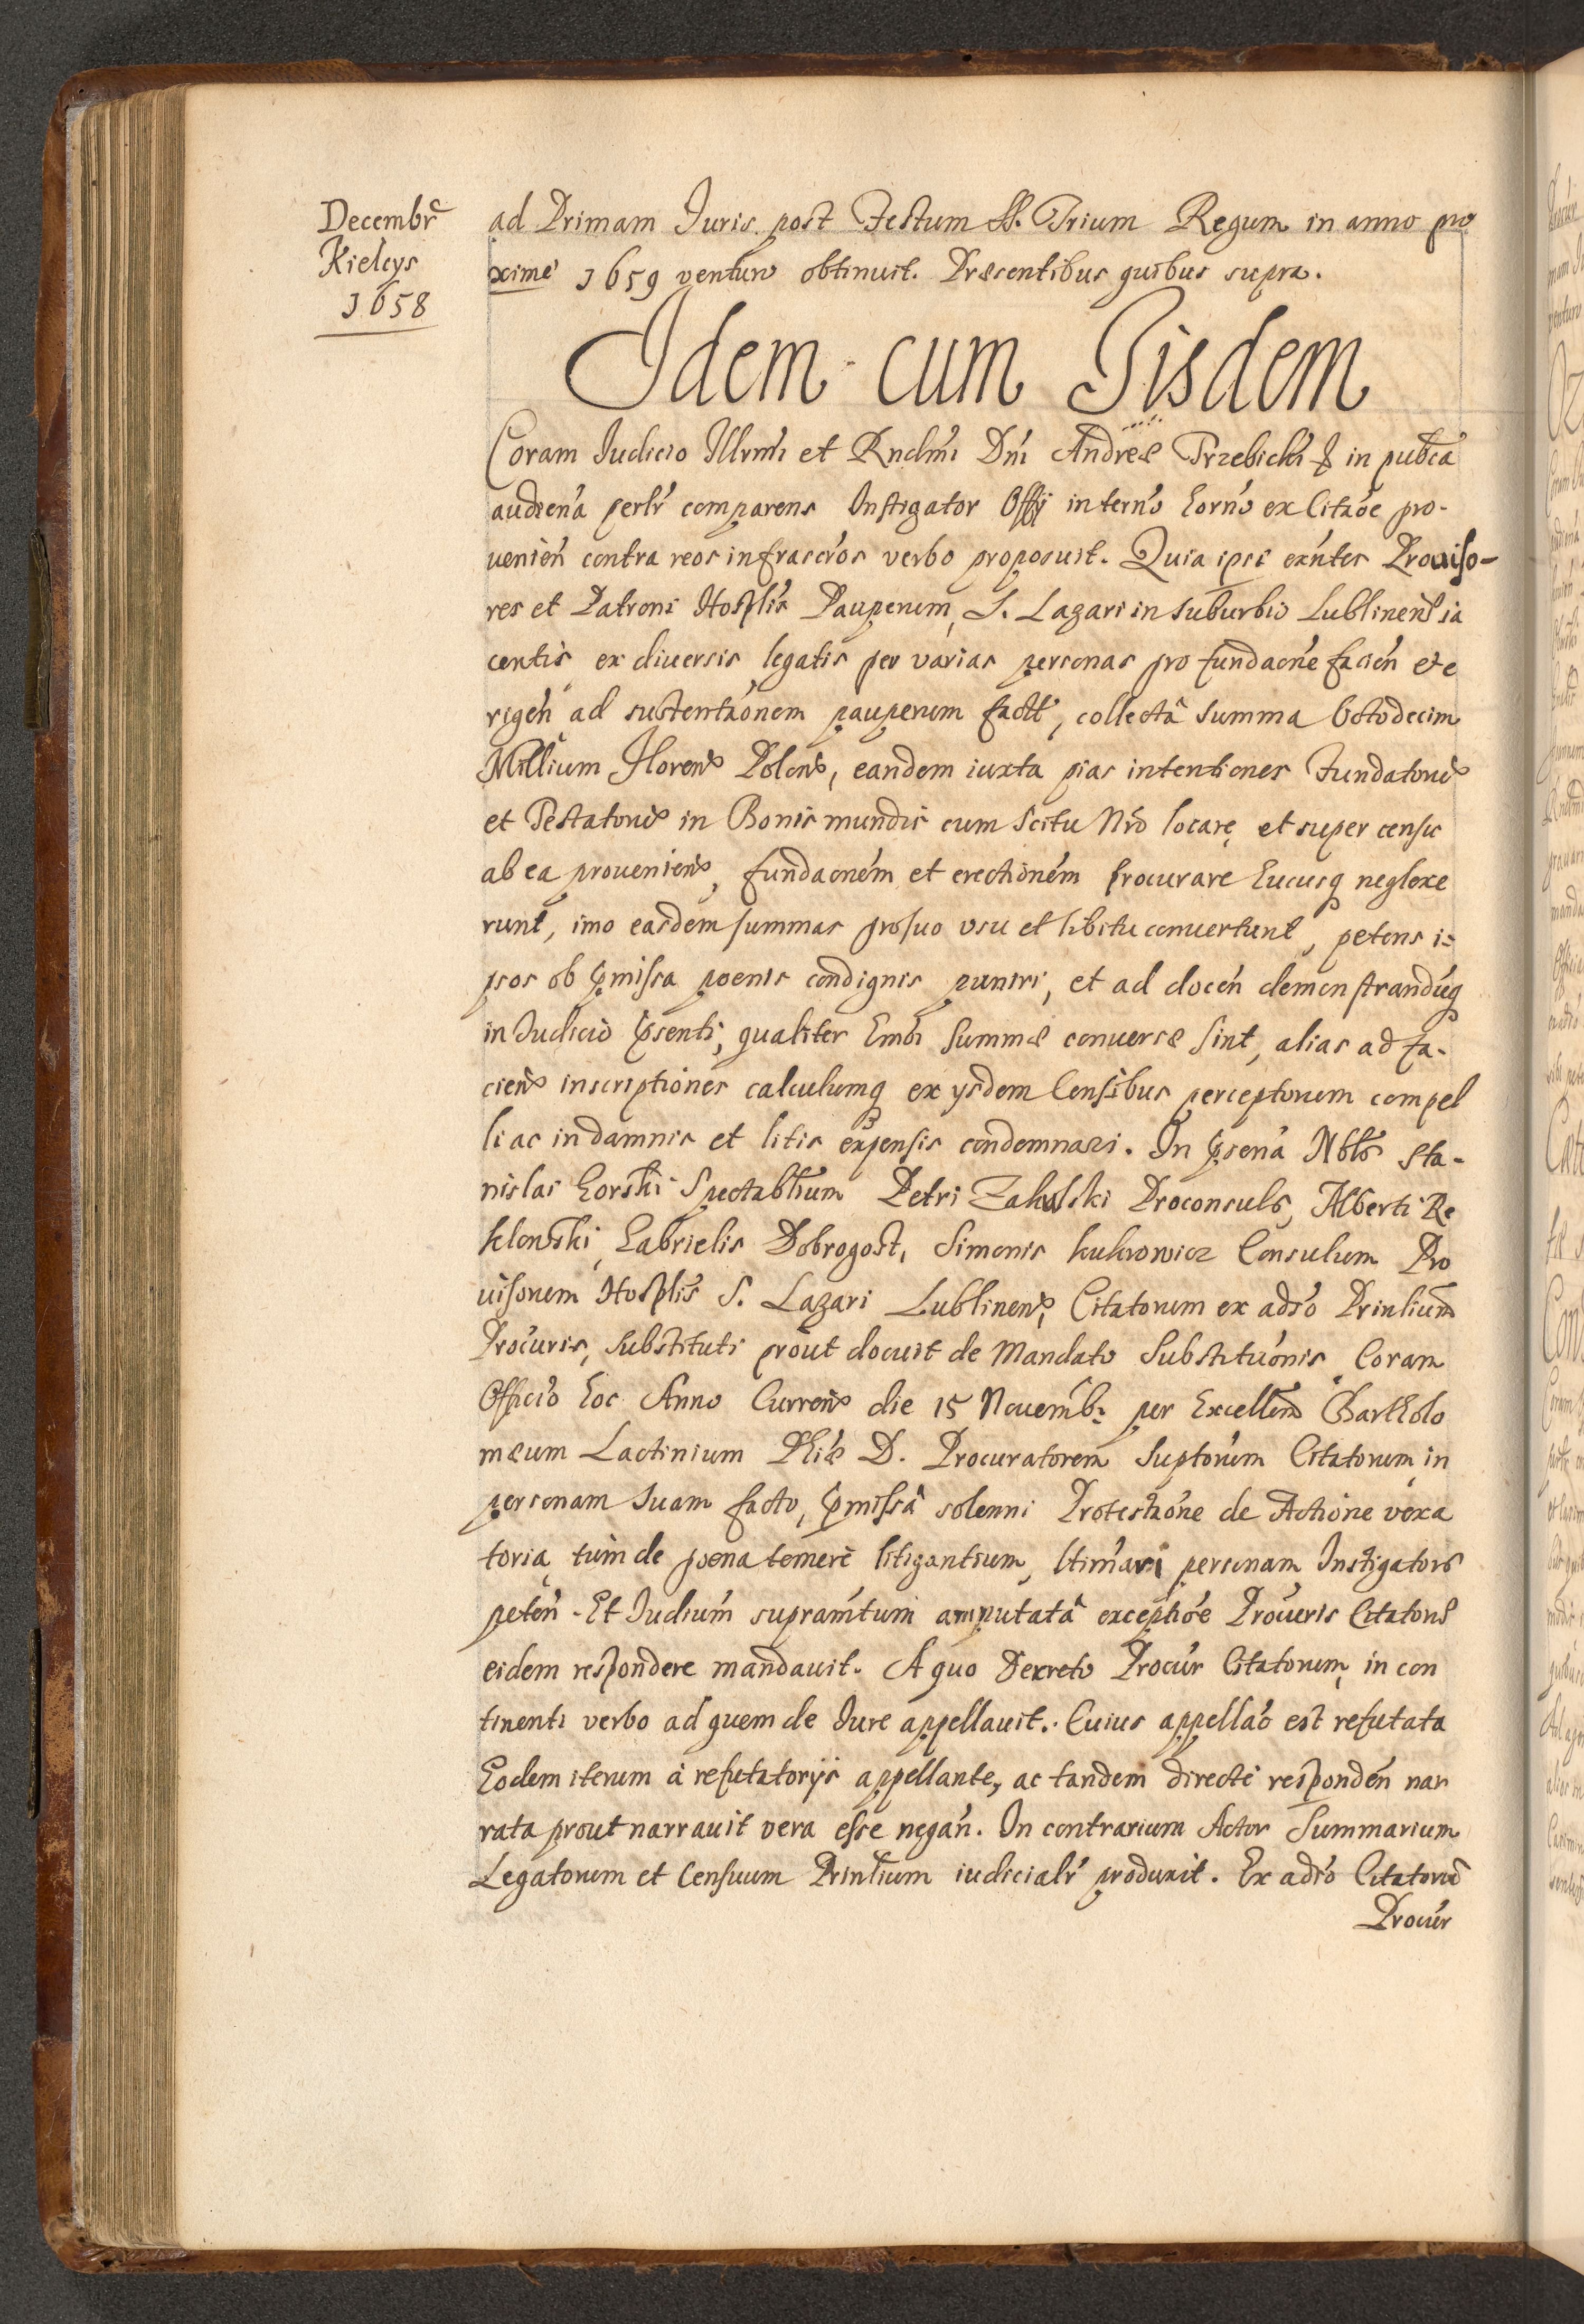 Decembr̃
Kielcys
1658
ad Primam Juris post Festum SS. Trium Regum in anno pro
ximé 1659 venturo obtinuit. Præsentibus quibus supra.
Idem cum Iisdem
Coram Judicio Illrmi et Rndmi Dni Andreæ Trzebicki & in pubca
audiena perlr comparens Instigator Offy interno horno ex Citaoe pro-
uenien contra reos infrascros verbo proposuit. Quia ipsi exntes Prouiso-
res et Patroni Hosplis Pauperum, S. Lazari in suburbio Lublinens ia
centis ex diuersis legatis per varias personas pro fundaone facien et e
rigen ad sustentaonem pauperum factt, collectâ summa Octodecim
Millium Florens Polons, eandem iuxta pias intentiones Fundatorũ
et Testatorũ in Bonis mundis cum scitu Nro locare et super censu
ab ea proueniens, fundaonem et erectionem procurare hucusq neglexe
runt, imo easdem summas pro suo usu et libitu conuertunt, petens i=
psos ob pmissa poenis condignis puniri, et ad docen demonstrandũq
in Judicio psenti, qualiter hmoi summæ conuersæ sint, alias ad fa-
ciens inscriptiones calculumq ex ysdem Censibus perceptorum compel
li ac in damnis et litis expensis condemnari. In psena Nobls Sta-
nislai Gorski Spectabilium Petri Zakulski Proconsuls, Alberti Re
klowski, Gabrielis Dobrogost, Simonis Kukrowicz Consulum Pro
uisorum Hosplis S. Lazari Lublinens, Citatorum ex adso Prinlium
Procuris, substituti prout docuit de Mandato Substituonis Coram
Officio hoc Anno Currens die 15 Nouemb: per Excellem Bartholo
mæum Lactinium Phiæ D. Procuratorem suptorum Citatorum in
personam suam facto, pmissâ solenni Protestaone de Actione vexa
toria, tum de poena temerè litigantium, ltimari personam Instigatoris
peten. Et Judium supramtum amputatâ exceptioe Procuris Citatorũ
eidem respondere mandauit. A quo Decreto Procur Citatorum, in con
tinenti verbo ad quem de Jure appellauit. Cuius appellao est refutata
Eodem iterum à refutatorijs appellante, ac tandem directè responden nar
rata prout narrauit vera esse negan. In contrarium Actor Summarium
Legatorum et Censuum Prinlium iudicialr produxit. Ex adso Citatorũ
Procur